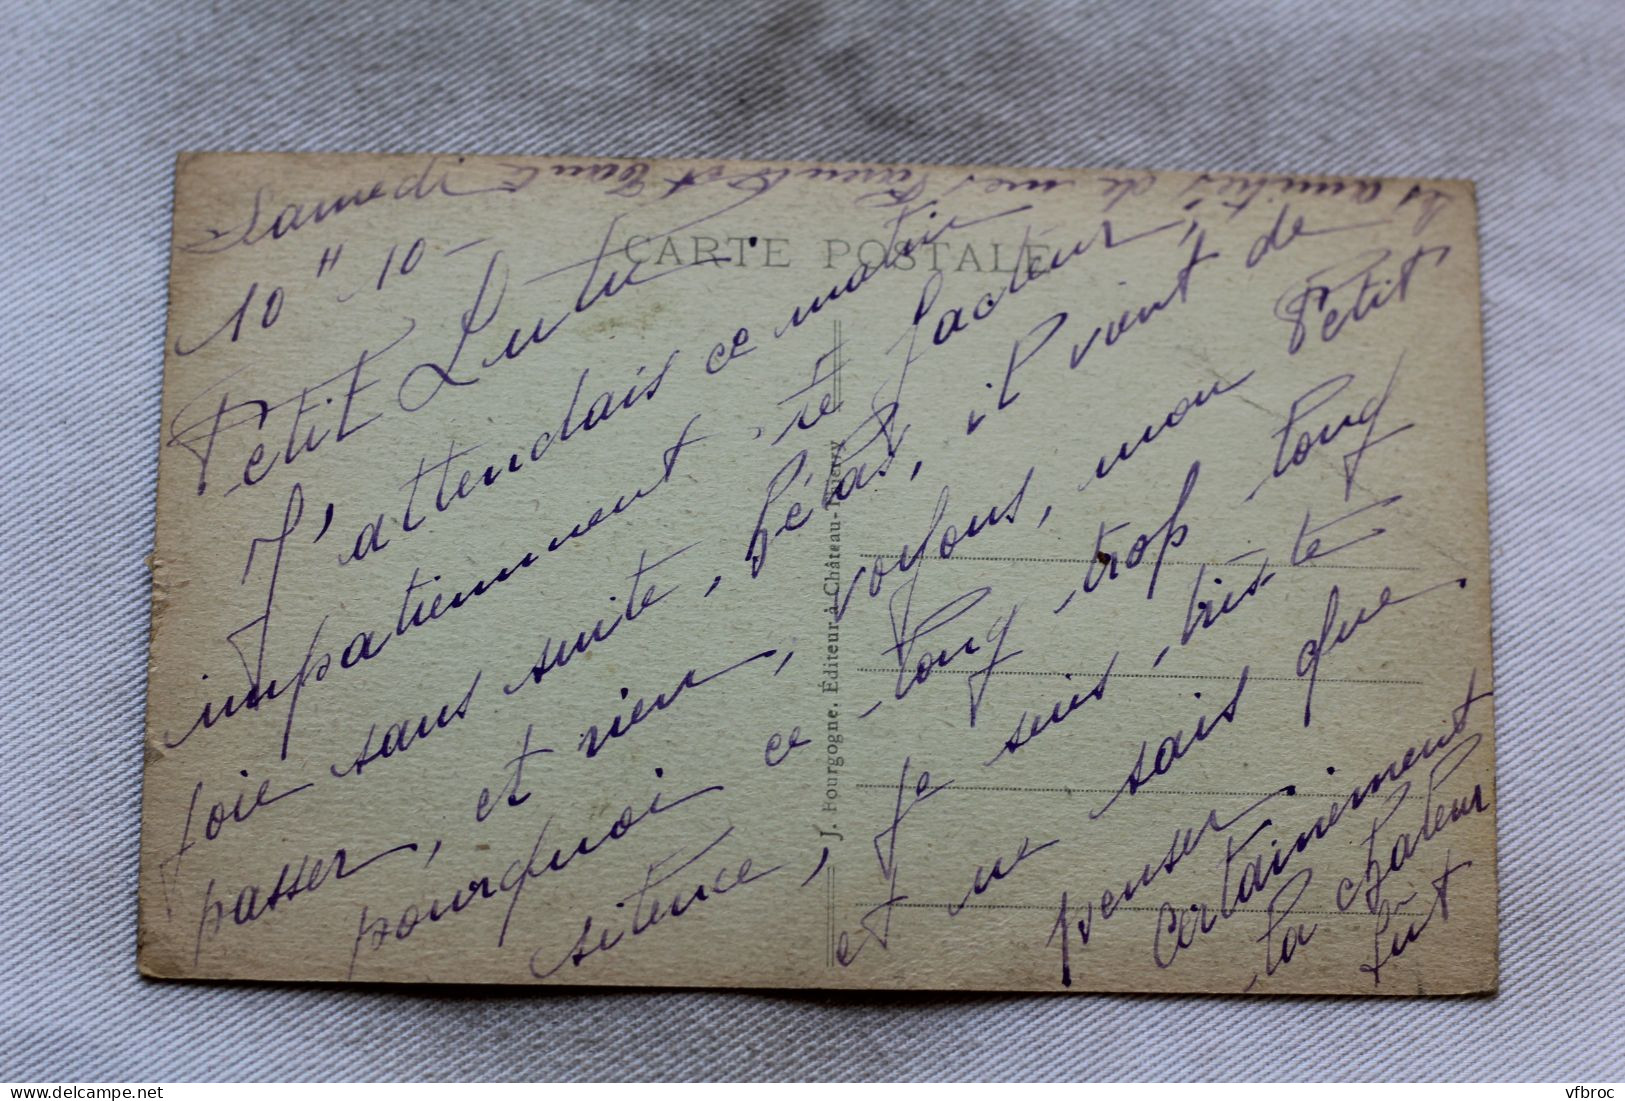 Samedi
10" 10 -
Petit Lutu.
J'attendais ce matin
impatiemment, te facteur,
foie sans suite, hélas, il vient de
passer, et rien, voyons, mon Petit
pourquoi ce long, trop long
silence, Je suis, triste
et ne sais que
penser.
Certainement
la chaleur
fut
amitiés de mes
CARTE POSTALE
J. Bourgogne, Éditeur à Château-Thierry
vfbroc
delcampe.net